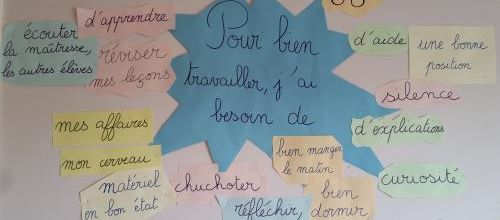 écouter
la maîtresse,
les autres élèves
d'apprendre
réviser
mes leçons
mes affaires
mon cerveau
matériel
en bon état
chuchoter
Pour bien
travailler, j'ai
besoin de
réfléchir,
bien manger
le matin
bien
dormir
d'aide
une bonne
position
silence
d'explications
curiosité